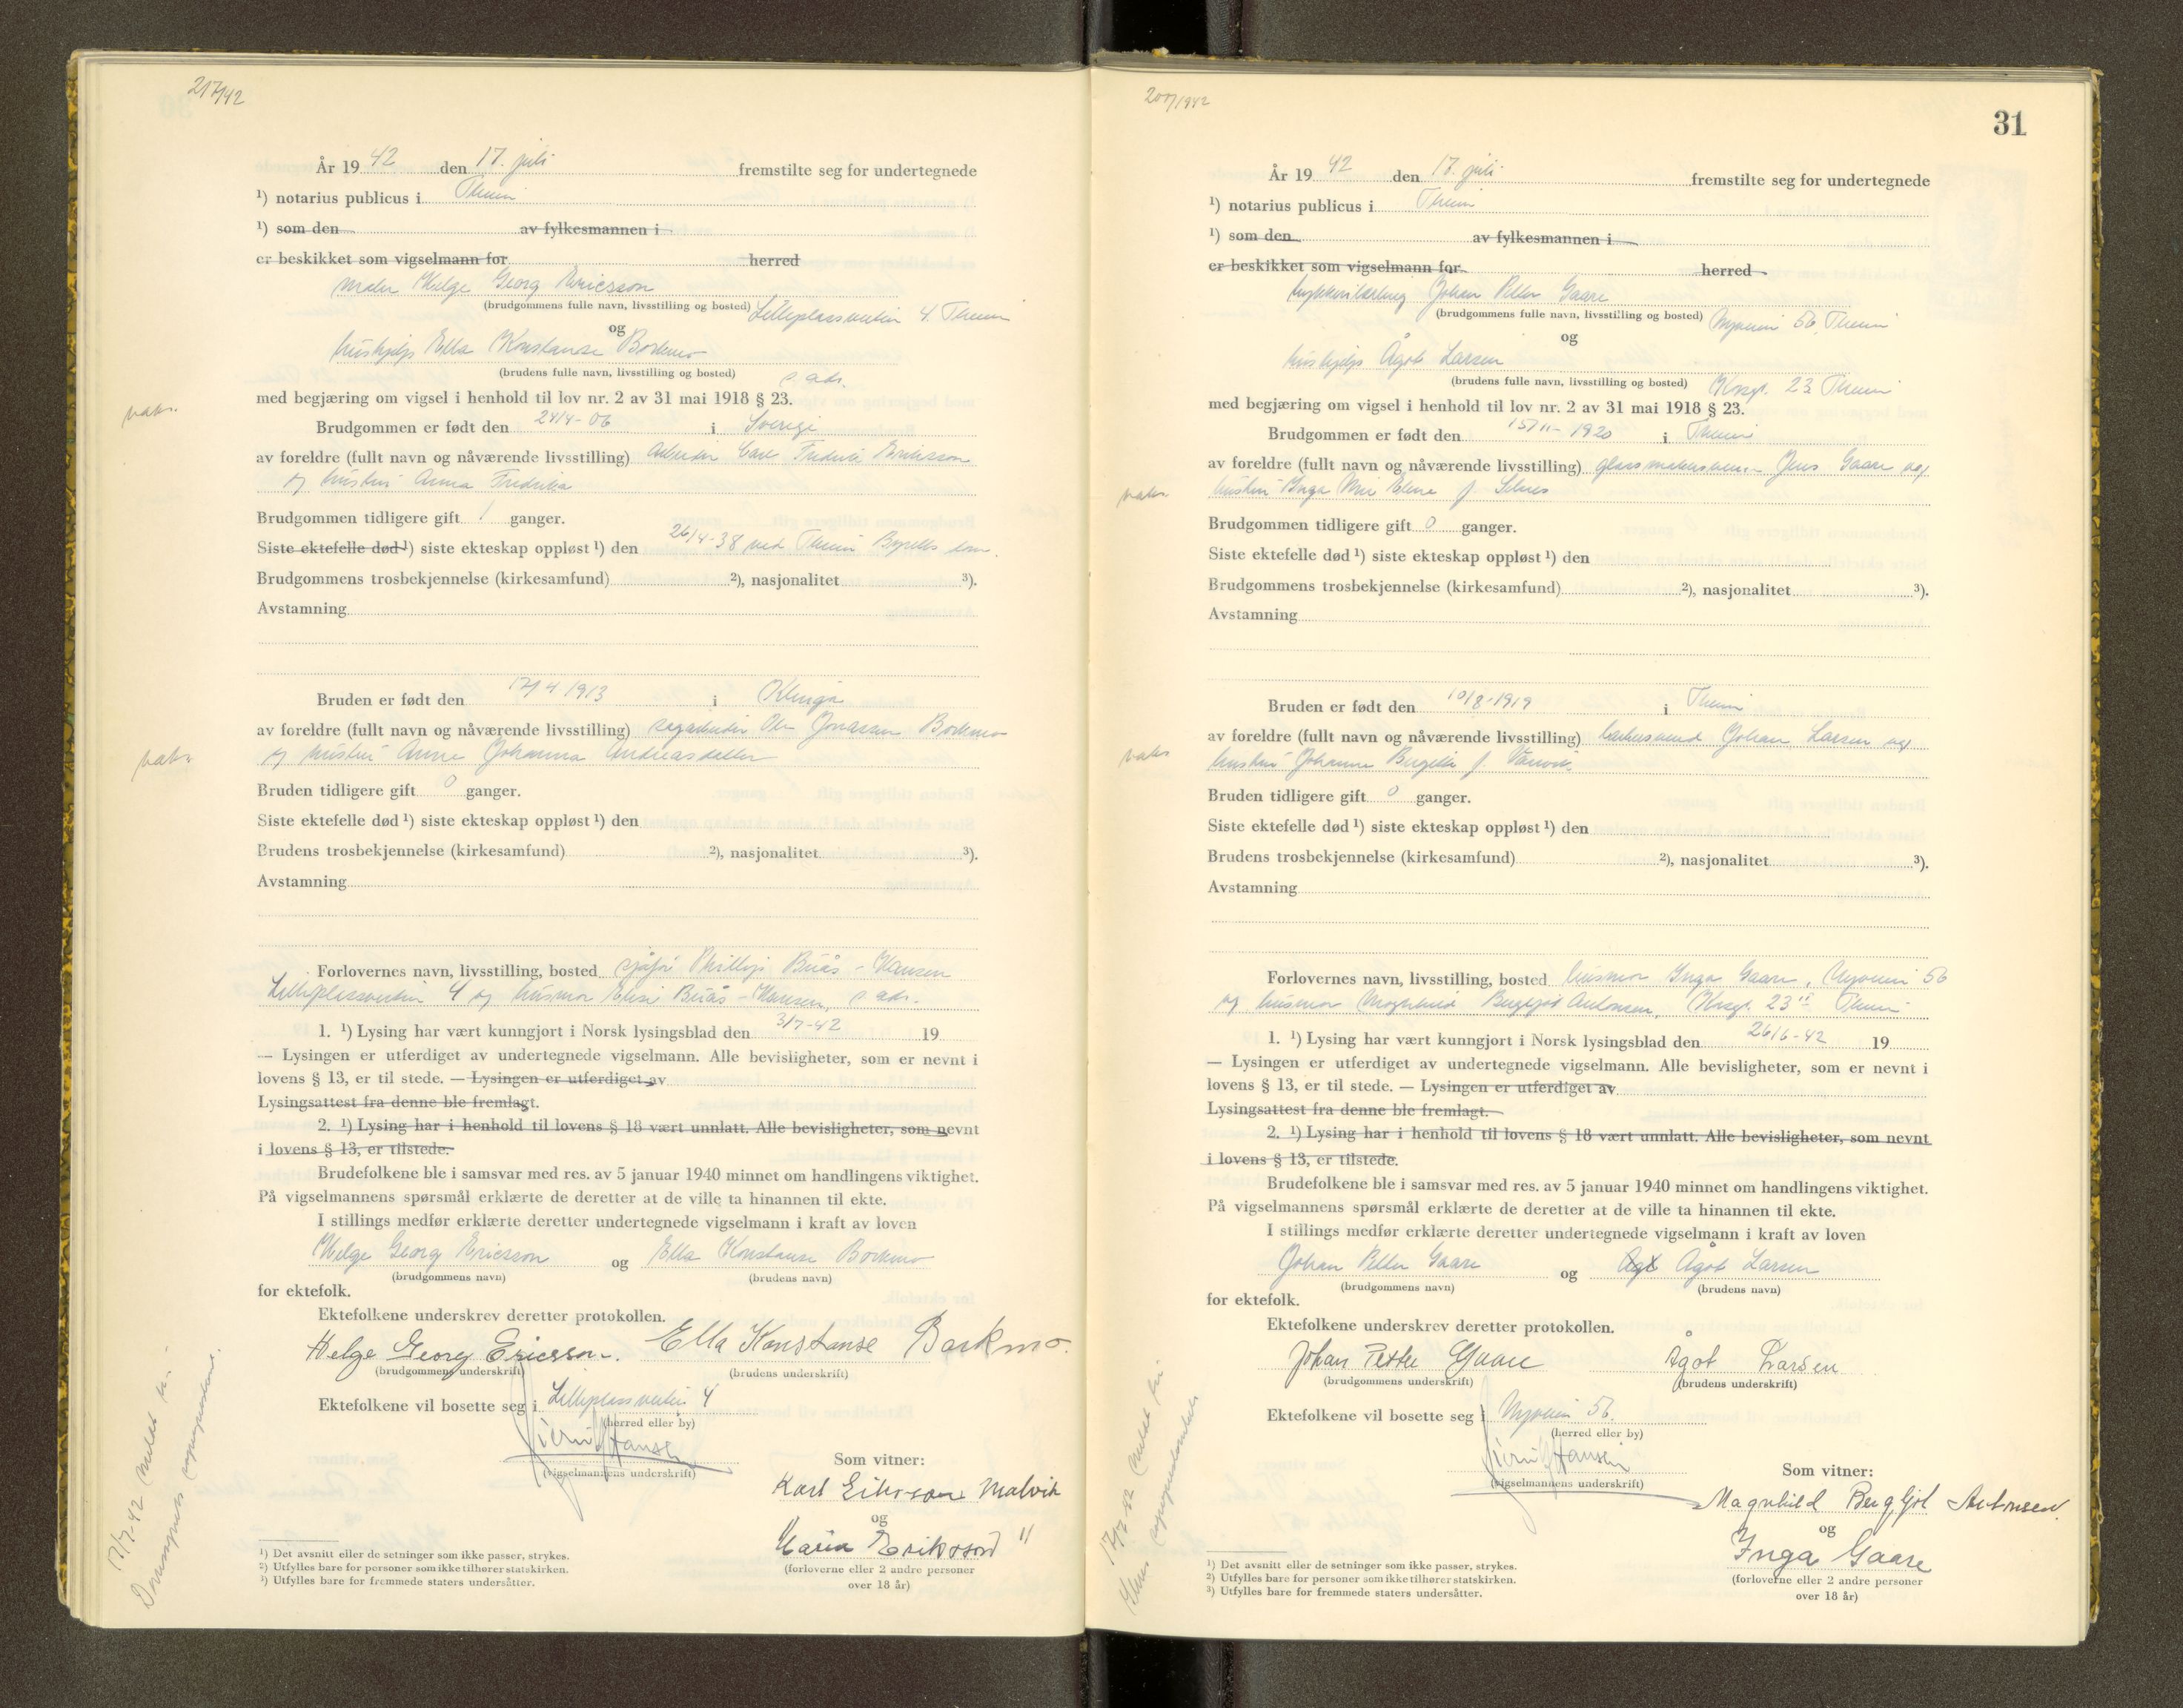 217/42
År 1942 den 17. juli fremstilte seg for undertegnede
¹) notarius publicus i Thrim
¹) som den av fylkesmannen i
er beskikket som vigselmann for herred
maler Helge Georg Ericsson
(brudgommens fulle navn, livsstilling og bosted) Lilleplassveien 4. Thrim
og
hushjelp Ella Konstanse Borkmo
(brudens fulle navn, livsstilling og bosted) s. adr.
med begjæring om vigsel i henhold til lov nr. 2 av 31 mai 1918 § 23.
vaks.
Brudgommen er født den 24/4-06 i Sverige
av foreldre (fullt navn og nåværende livsstilling) arbeider Carl Fredrik Eriksson
og hustru Anna Fredrika
Brudgommen tidligere gift 1 ganger.
Siste ektefelle død ¹) siste ekteskap oppløst ¹) den 26/4-38 ved Thrim Byretts dom.
Brudgommens trosbekjennelse (kirkesamfund) ²), nasjonalitet ³).
Avstamning
Bruden er født den 17/4 1913 i Klinga
av foreldre (fullt navn og nåværende livsstilling) sagarbeider Ole Jonassen Borkmo
vaks
og hustru Anne Johanna Andreasdatter
Bruden tidligere gift 0 ganger.
Siste ektefelle død ¹) siste ekteskap oppløst ¹) den
Brudens trosbekjennelse (kirkesamfund) ²), nasjonalitet ³).
Avstamning
Forlovernes navn, livsstilling, bosted sjåfør Phillip Buås-Hansen
Lilleplassveien 4 og husmor Elise Buås-Hansen, s. adr.
1. ¹) Lysing har vært kunngjort i Norsk lysingsblad den 3/7-42 19
— Lysingen er utferdiget av undertegnede vigselmann. Alle bevisligheter, som er nevnt i
lovens § 13, er til stede. — Lysingen er utferdiget av
Lysingsattest fra denne ble fremlagt.
2. ¹) Lysing har i henhold til lovens § 18 vært unnlatt. Alle bevisligheter, som nevnt
i lovens § 13, er tilstede.
Brudefolkene ble i samsvar med res. av 5 januar 1940 minnet om handlingens viktighet.
På vigselmannens spørsmål erklærte de deretter at de ville ta hinannen til ekte.
I stillings medfør erklærte deretter undertegnede vigselmann i kraft av loven
Helge Georg Ericsson og Ella Konstanse Borkmo
(brudgommens navn) (brudens navn)
for ektefolk.
Ektefolkene underskrev deretter protokollen.
Helge Georg Ericsson. Ella Konstanse Borkmo.
(brudgommens underskrift) (brudens underskrift)
Ektefolkene vil bosette seg i Lilleplassveien 4
(herred eller by)
Hansen
(vigselmannens underskrift)
Som vitner:
Karl Eriksson Malvik
og
Maria Eriksson "
(forloverne eller 2 andre personer
over 18 år)
17/7-42 meldt til
¹) Det avsnitt eller de setninger som ikke passer, strykes.
²) Utfylles bare for personer som ikke tilhører statskirken.
³) Utfylles bare for fremmede staters undersåtter.
207/1942
31
År 1942 den 17. juli fremstilte seg for undertegnede
¹) notarius publicus i Thrim
¹) som den av fylkesmannen i
er beskikket som vigselmann for herred
Johan Petter Gaare
(brudgommens fulle navn, livsstilling og bosted) Nyveien 56, Thrim
og
hushjelp Ågot Larsen
(brudens fulle navn, livsstilling og bosted) Krsgt. 23 Thrim
med begjæring om vigsel i henhold til lov nr. 2 av 31 mai 1918 § 23.
Brudgommen er født den 15/11-1920 i Thrim
av foreldre (fullt navn og nåværende livsstilling) glassmakersvenn Jens Gaare og
vaks
hustru Inga Elene f. Selnes
Brudgommen tidligere gift 0 ganger.
Siste ektefelle død ¹) siste ekteskap oppløst ¹) den
Brudgommens trosbekjennelse (kirkesamfund) ²), nasjonalitet ³).
Avstamning
Bruden er født den 10/8-1919 i Thrim
av foreldre (fullt navn og nåværende livsstilling) Johan Larsen og
vaks
hustru Johanne Bergitte f.
Bruden tidligere gift 0 ganger.
Siste ektefelle død ¹) siste ekteskap oppløst ¹) den
Brudens trosbekjennelse (kirkesamfund) ²), nasjonalitet ³).
Avstamning
Forlovernes navn, livsstilling, bosted husmor Inga Gaare, Nyveien 56
og husmor Magnhild Bergljot Antonsen, Krsgt. 23 II Thrim
1. ¹) Lysing har vært kunngjort i Norsk lysingsblad den 26/6-42 19
— Lysingen er utferdiget av undertegnede vigselmann. Alle bevisligheter, som er nevnt i
lovens § 13, er til stede. — Lysingen er utferdiget av
Lysingsattest fra denne ble fremlagt.
2. ¹) Lysing har i henhold til lovens § 18 vært unnlatt. Alle bevisligheter, som nevnt
i lovens § 13, er tilstede.
Brudefolkene ble i samsvar med res. av 5 januar 1940 minnet om handlingens viktighet.
På vigselmannens spørsmål erklærte de deretter at de ville ta hinannen til ekte.
I stillings medfør erklærte deretter undertegnede vigselmann i kraft av loven
Johan Petter Gaare og Agt Ågot Larsen
(brudgommens navn) (brudens navn)
for ektefolk.
Ektefolkene underskrev deretter protokollen.
Johan Petter Gaare Ågot Larsen
(brudgommens underskrift) (brudens underskrift)
Ektefolkene vil bosette seg i Nyveien 56.
(herred eller by)
Hansen
(vigselmannens underskrift)
Som vitner:
Magnhild Bergljot Antonsen.
og
Inga Gaare
(forloverne eller 2 andre personer
over 18 år)
17/7-42 meldt til
¹) Det avsnitt eller de setninger som ikke passer, strykes.
²) Utfylles bare for personer som ikke tilhører statskirken.
³) Utfylles bare for fremmede staters undersåtter.